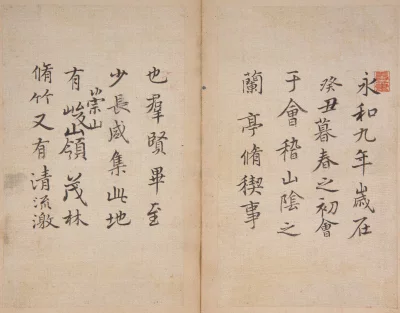 永和九年歲在
癸丑暮春之初會
于會稽山陰之
蘭亭脩稧事
也羣賢畢至
少長咸集此地
有崇山峻領茂林
脩竹又有清流激